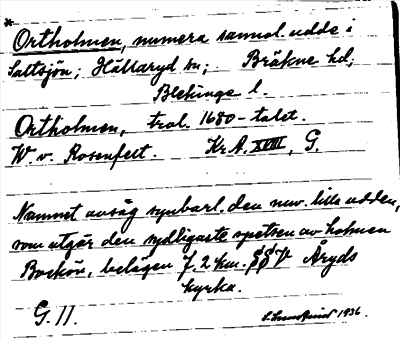 *
Ortholmen, numera sannol. udde i
Saltsjön; Hällaryd sn; Bräkne hd;
Blekinge l.
Ortholmen, trol. 1680-talet.
W. v. Rosenfelt. Kr.A. XVIII, G.
Namnet avsåg synbarl. den nuv. lilla udden,
som utgör den sydligaste spetsen av holmen
Bockön, belägen 7.2 km. Åryds
kyrka.
G. 11. 1936.